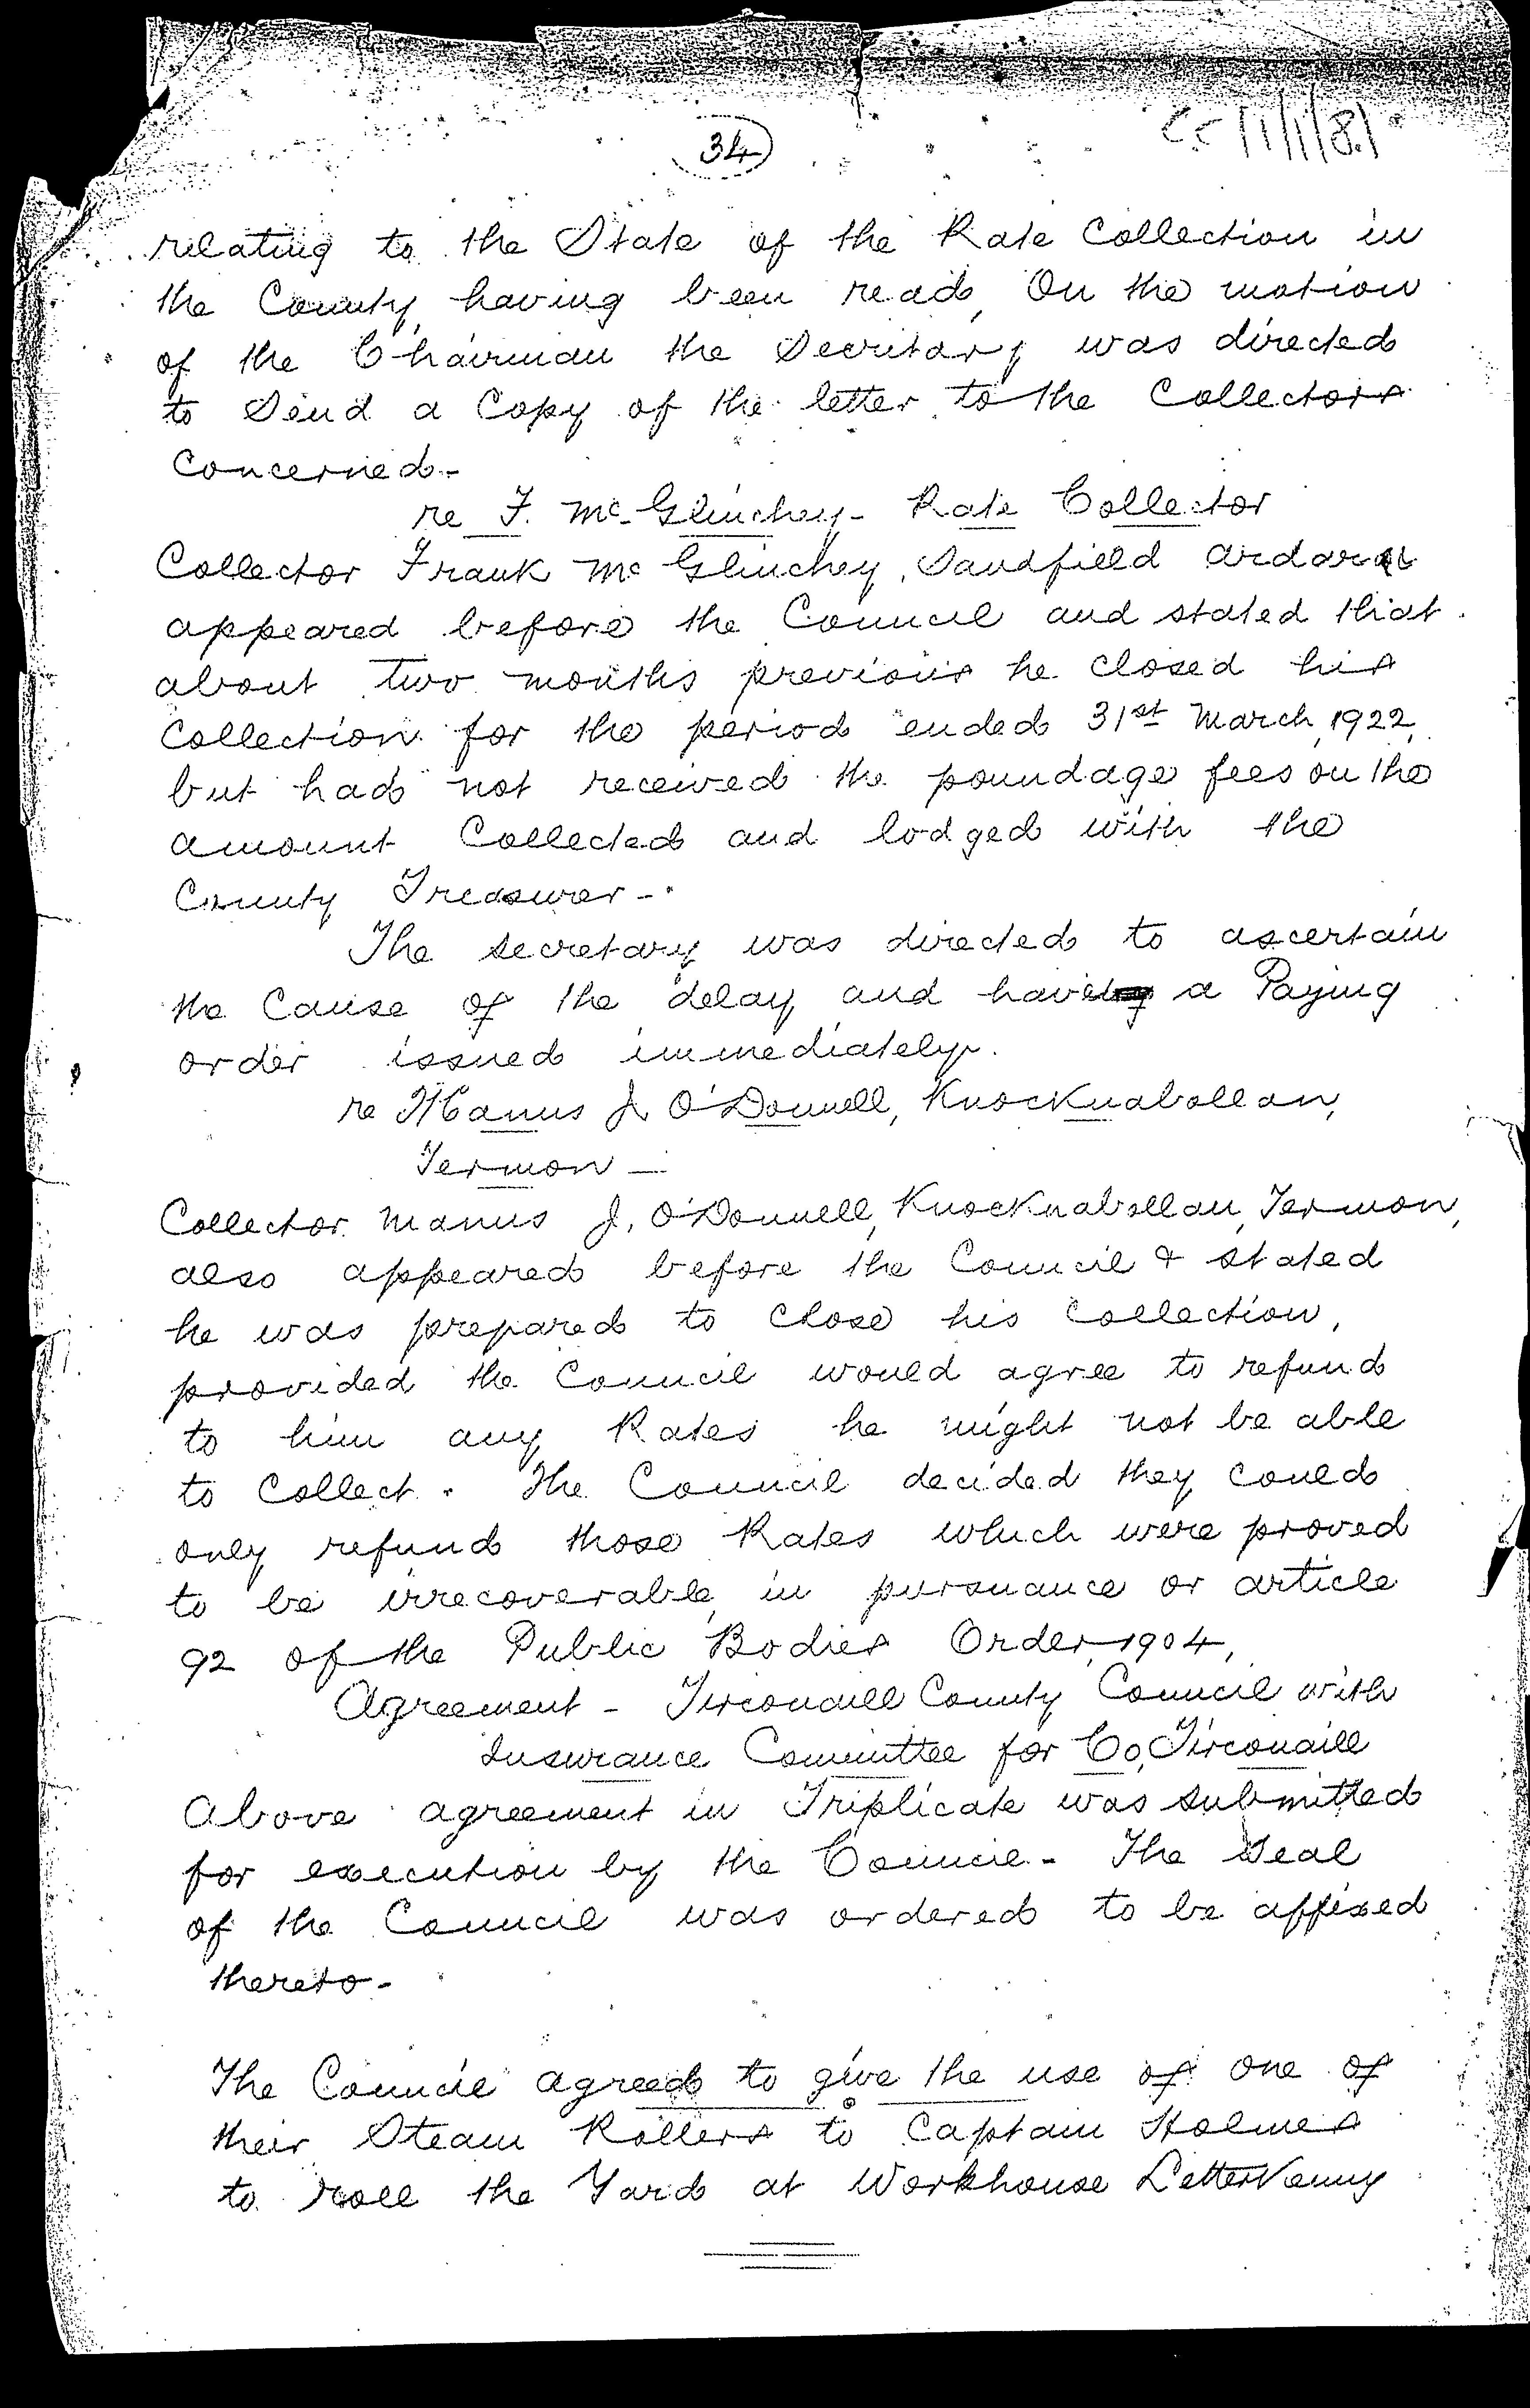 34
CC/1/1/81
relating to the State of the Rate Collection in
the County, having been read, On the motion
of the Chairman the Secretary was directed
to Send a Copy of the letter to the Collectors
Concerned-
re F. McGlinchey- Rate Collector
Collector Frank McGlinchey, Sandfield Ardara
appeared before the Council and stated that
about two months previous he closed his
Collection for the period ended 31st March, 1922,
but had not received the poundage fees on the
amount Collected and lodged with the
County Treasurer-
The secretary was directed to ascertain
the Cause of the delay and have a Paying
order issued immediately.
re Manus J. O'Donnell, Knocknabollan,
Termon-
Collector Manus J. O'Donnell, Knocknabollan, Termon,
also appeared before the Council & stated
he was prepared to close his Collection,
provided the Council would agree to refund
to him any Rates he might not be able
to Collect. The Council decided they could
only refund those Rates which were proved
to be irrecoverable, in pursuance or article
92 of the Public Bodies Order, 1904,
Agreement - Tirconaill County Council with
Insurance Committee for Co. Tirconaill
Above agreement in Triplicate was submitted
for execution by the Council- The Seal
of the Council was ordered to be affixed
thereto-
The Council agreed to give the use of one of
their Steam Rollers to Captain Holmes
to roll the Yard at Workhouse Letterkenny